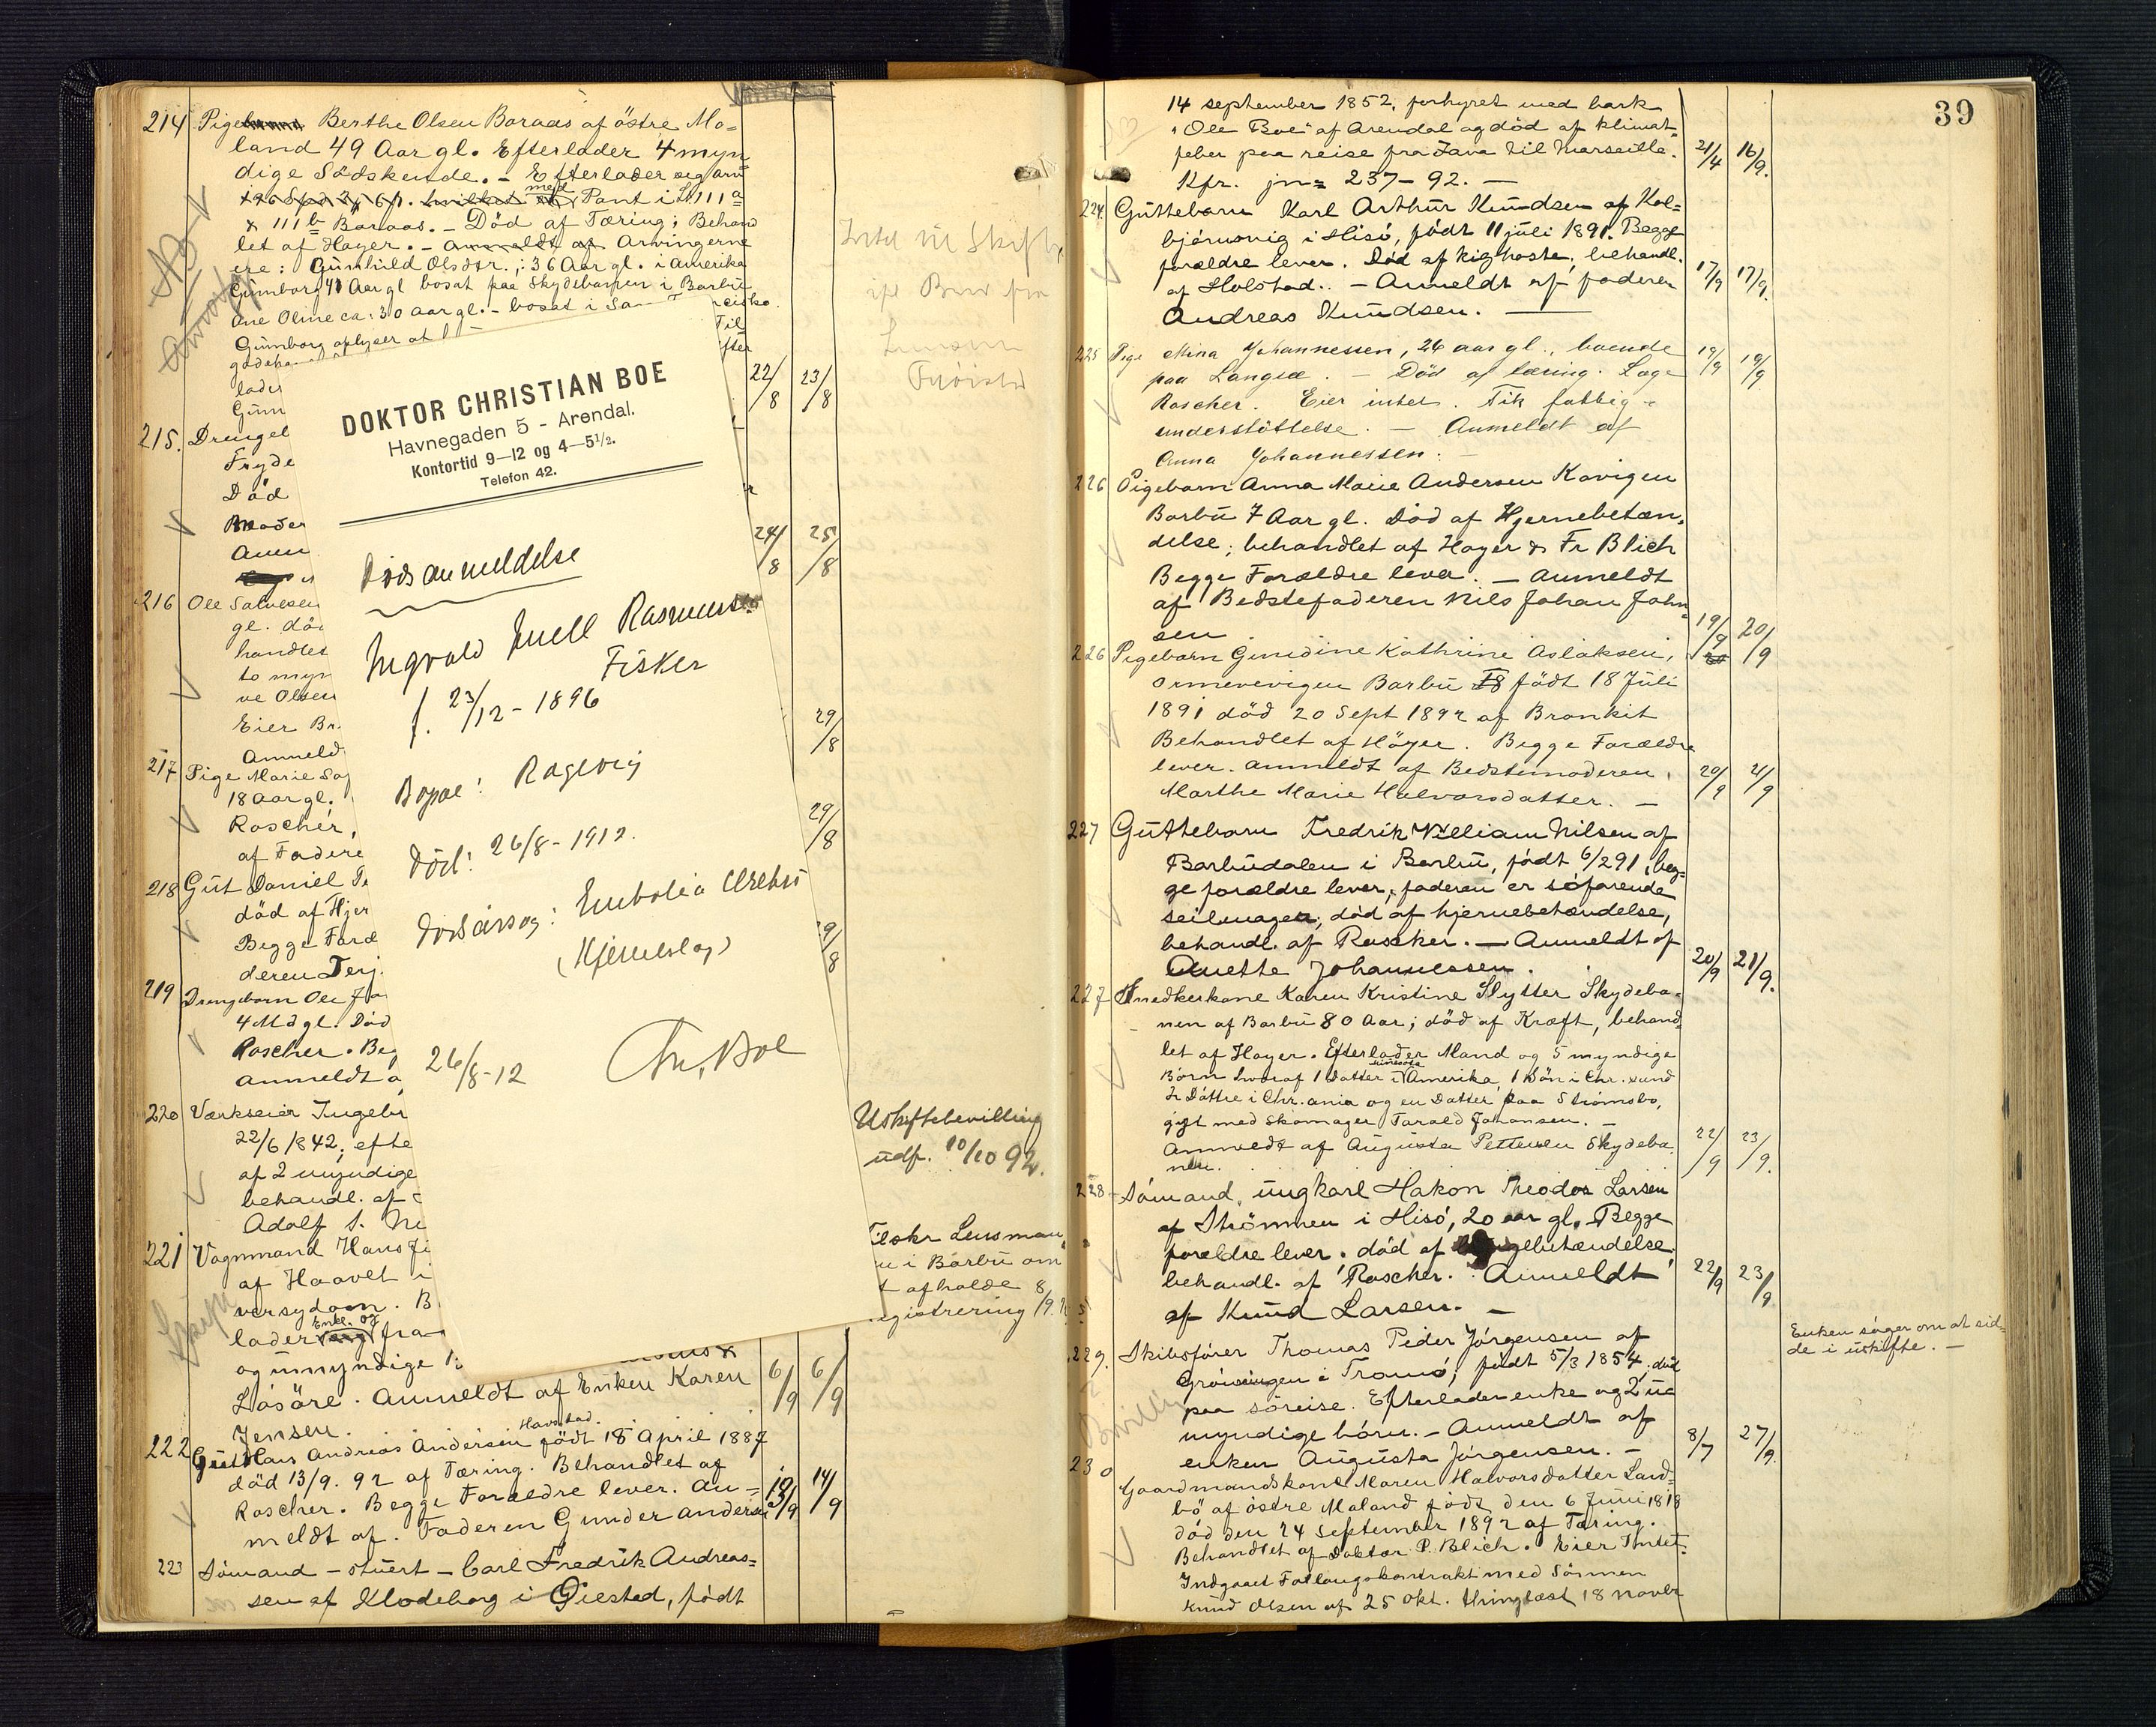 214 Pige Berthe Olsen Baraas af östre Mo=
land 49 Aar gl. Efterlader 4 myn
dige Södskende. - Efterlader sig
med Pant i
& 111 b Baraas. - Död af Tæring; Behand
let af Hoyer. - Arvingerne
ere: Gunhild Olsdtr. 36 Aar gl. i Amerika
Gunborg 41 Aar gl bosat paa Skydebanen i Barbu
Ane Oline ca: 30 aar gl. - bosat i San
Gunborg oplyser at
lader
Gun
22/8 23/8
215. Drengeb
Fryde
Död
Moder
Anm
24/8 25/8
216 Ole Salvesen
gl. död
handlet
to myn
ve Olsen
Eier Br.
Anmeld
29/8
217 Pige Marie
18 Aar gl.
Roscher,
af Fadere
29/8
218 Gut Daniel
död af Hjer
Begge Foræ
deren Terj.
29/8
219 Drengebarn Ole
4 Md gl. Död
Roscher. Be
anmeldt a
220 Værkseier Ingebr
22/6 1842, efte
af 2 umyndige
behandl. af
Adolf S. Ni
Uskiftebevilling
udf. 10/10 92.
221 Vognmand Hans
af Haavet i
versygdom. B
Enke og
lader fra
og umyndige
Lösöre. Anmeldt af Enken Karen
Jensen.
6/9 6/9
Tilskr Lensman
u i Barbu om
t afholde
egistrering
222 Gut Hans Andreas Andersen Havstad. födt 18 April 1887
död 13/9. 92 af Tæring. Behandlet af
Roscher. Begge Forældre lever. An=
meldt af Faderen Gunder Andersen
13/9 14/9
223 Sömand - stuert - Carl Fredrik Andreas=
sen af Klodeborg i Öiestad, födt
DOKTOR CHRISTIAN BOE
Havnegaden 5 - Arendal.
Kontortid 9-12 og 4-5½.
Telefon 42.
Dödsanmeldelse
Ingvald Rasmussen
Fisker
f. 23/12 - 1896
Bopæl: Ragevig
Död: 26/8 - 1912.
Dødsårsag: Embolia cerebri
(Hjerneslag)
26/8-12 Chr. Boe
39
14 september 1852, forhyret med bark
"Ole Boe" af Arendal og död af klimat=
feber paa reise fra Java til Marseille.
Kfr. jn= 237-92. -
21/4 16/9.
224. Guttebarn Karl Arthur Knudsen af Kol=
björnsvig i Hisö, födt 11 juli 1891. Begge
forældre lever. Död af kighoste, behandl.
af Holstad. - Anmeldt af faderen
Andreas Knudsen.
17/9 17/9.
225 Pige Mina Johannessen, 26 aar gl., boende
paa Langsæ. - Död af tæring. Læge
Roscher. Eier intet. Fik fattig=
understöttelse. - Anmeldt af
Anna Johannessen. -
19/9 19/9
226 Pigebarn Anna Marie Andersen Kavigen
Barbu 7 Aar gl. Död af Hjernebetæn=
delse; behandlet af Hoyer & Fr Blich
Begge Forældre lever. - Anmeldt
af Bedstefaderen Nils Johan John=
sen
19/9 20/9
226 Pigebarn Gunidine Kathrine Aslaksen,
Ormevevigen Barbu födt 18 Juli
1891 död 20 Sept 1892 af Bronkit
Behandlet af Höyer. Begge Forældre
lever. anmeldt af Bedstemoderen,
Marthe Marie Halvorsdatter. -
20/9 21/9
227 Guttebarn Fredrik William Nilsen af
Barbudalen i Barbu, födt 6/2 91, beg=
ge forældre lever, faderen er söfarende
seilmager, död af hjernebetændelse,
behandl. af Roscher. - Anmeldt af
Anette Johannessen.
20/9 21/9.
227 Snedkerkone Karen Kristine Slytter Skydeba=
nen af Barbu 80 Aar; död af Kræft, behand=
let af Hoyer. Efterlader Mand og 5 myndige
Börn hvoraf 1 Datter i Amerika, 1 Sön i Chr. sund
2 Döttre i Chr.ania og en Datter paa Strömsbo,
gift med Skomager Tarald Johansen. -
Anmeldt af Augusta Pettersen Skydeba
nen.
22/9 23/9.
228 Sömand, ungkarl Hakon Theodor Larsen
af Strömmen i Hisö, 20 aar gl. Begge
forældre lever. död af
behandl. af Roscher. Anmeldt
af Knud Larsen. -
22/9 23/9
229. Skibsförer Thomas Peder Jörgensen af
i Tromö, födt 5/3 1854. död
paa söreise. Efterlader enke og 2 u=
myndige börn. - Anmeldt af
enken Augusta Jörgensen. -
8/7 27/9
Enken söger om at sid=
de i uskifte. -
230 Gaardmandskone Maren Halvorsdatter Land=
bö af östre Moland födt den 6 Juni 1818
död den 24 September 1892 af Tæring.
Behandlet af Doktor P. Blich. Eier Intet.
Indgaaet Foellaugskontrakt med Sönnen
Knud Olsen af 25 Okt. thinglæst 18 novbr